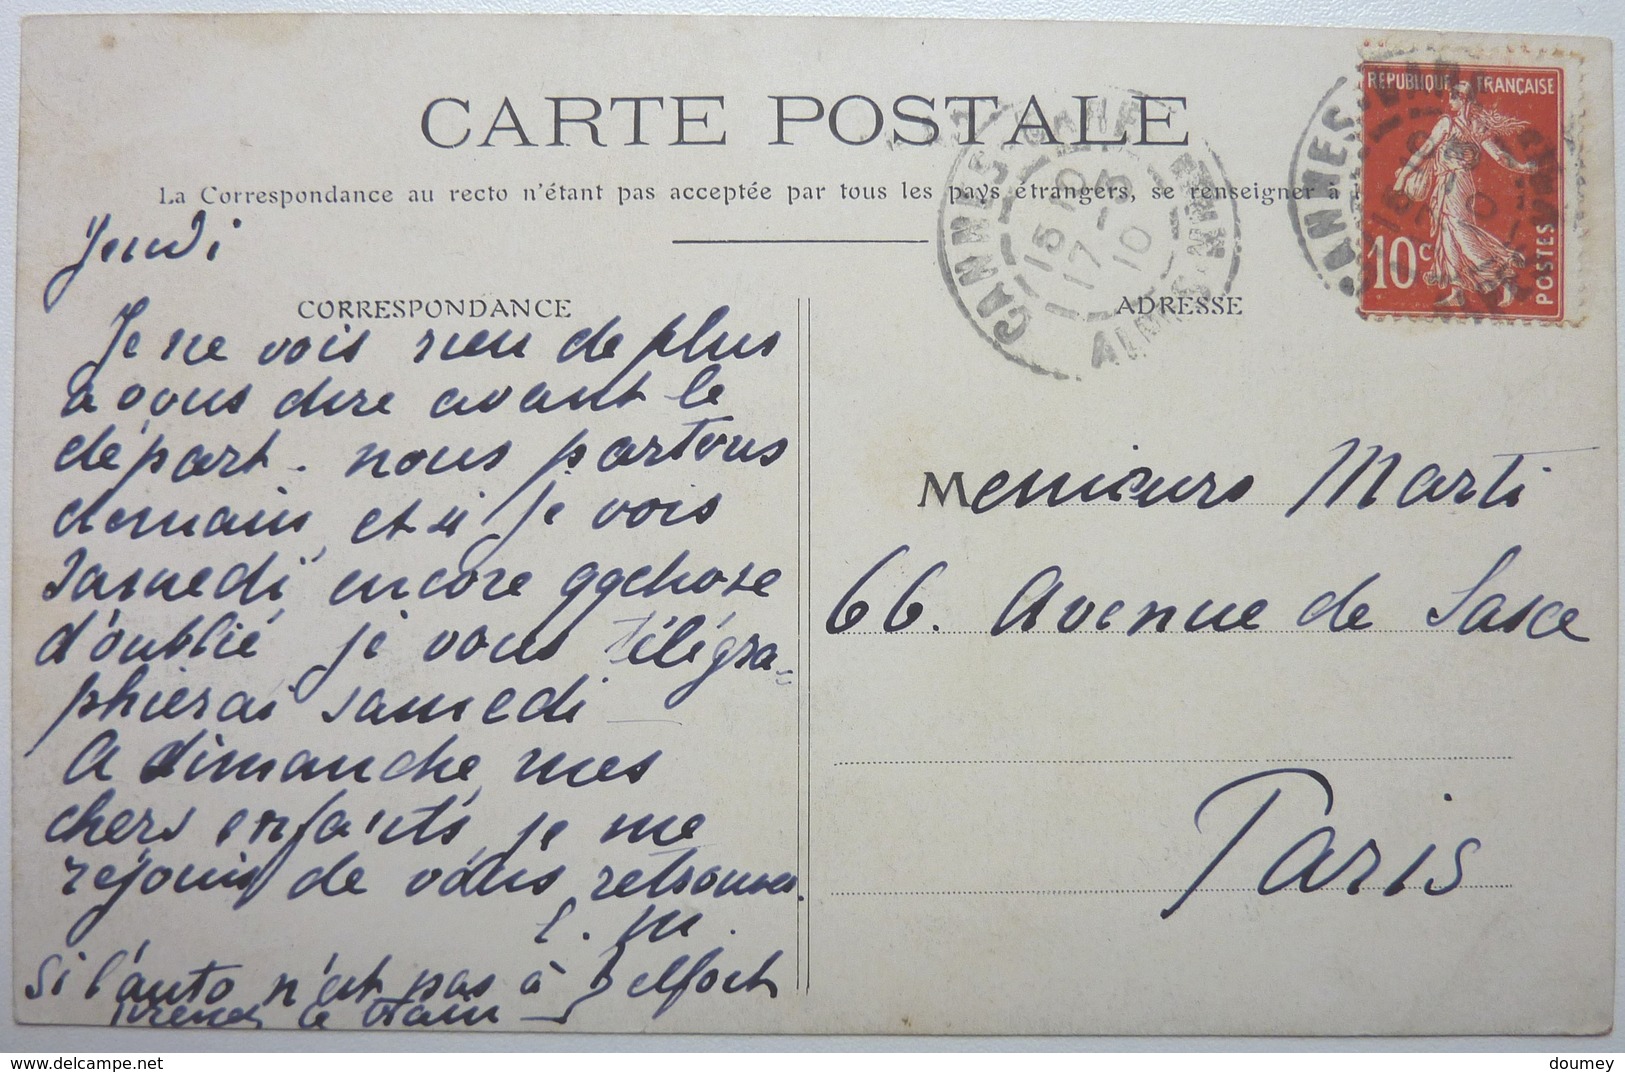 CARTE POSTALE
La Correspondance au recto n'étant pas acceptée par tous les pays étrangers, se renseigner à
REPUBLIQUE FRANÇAISE
10c
POSTES
CANNES
15 10
17 - 3
10
ALPES-MARIT
CORRESPONDANCE
Jeudi
Je ne vois rien de plus
a vous dire avant le
départ. nous partons
demain, et si je vois
Samedi encore qqchose
d'oublié je vous télégra-
phierai samedi
A dimanche, mes
chers enfants, je me
rejouis de vous retrouver.
E. M.
Si l'auto n'est pas à Belfort
prenez le train
ADRESSE
Messieurs Marti
66. Avenue de Saxe
Paris
https://www.delcampe.net
doumey